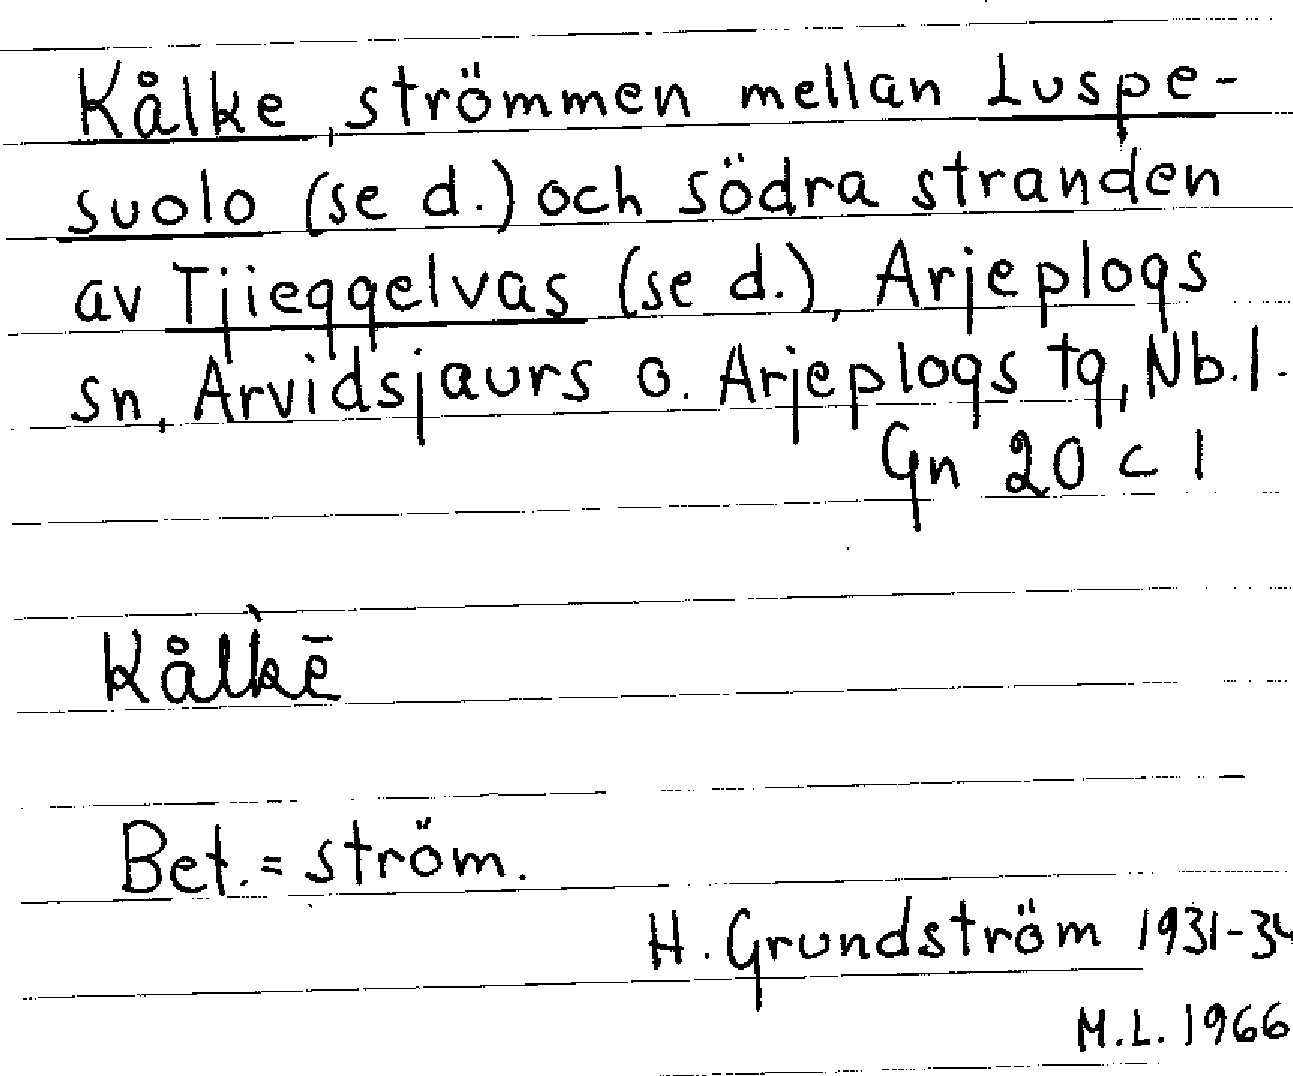 Kålke, strömmen mellan Luspe-
suolo (se d.) och södra stranden
av Tjieggelvas (se d.), Arjeplogs
sn, Arvidsjaurs o. Arjeplogs tg, Nb.l.
Gn 20 c 1
Kål̀kē
Bet. = ström.
H. Grundström 1931-34
M.L. 1966